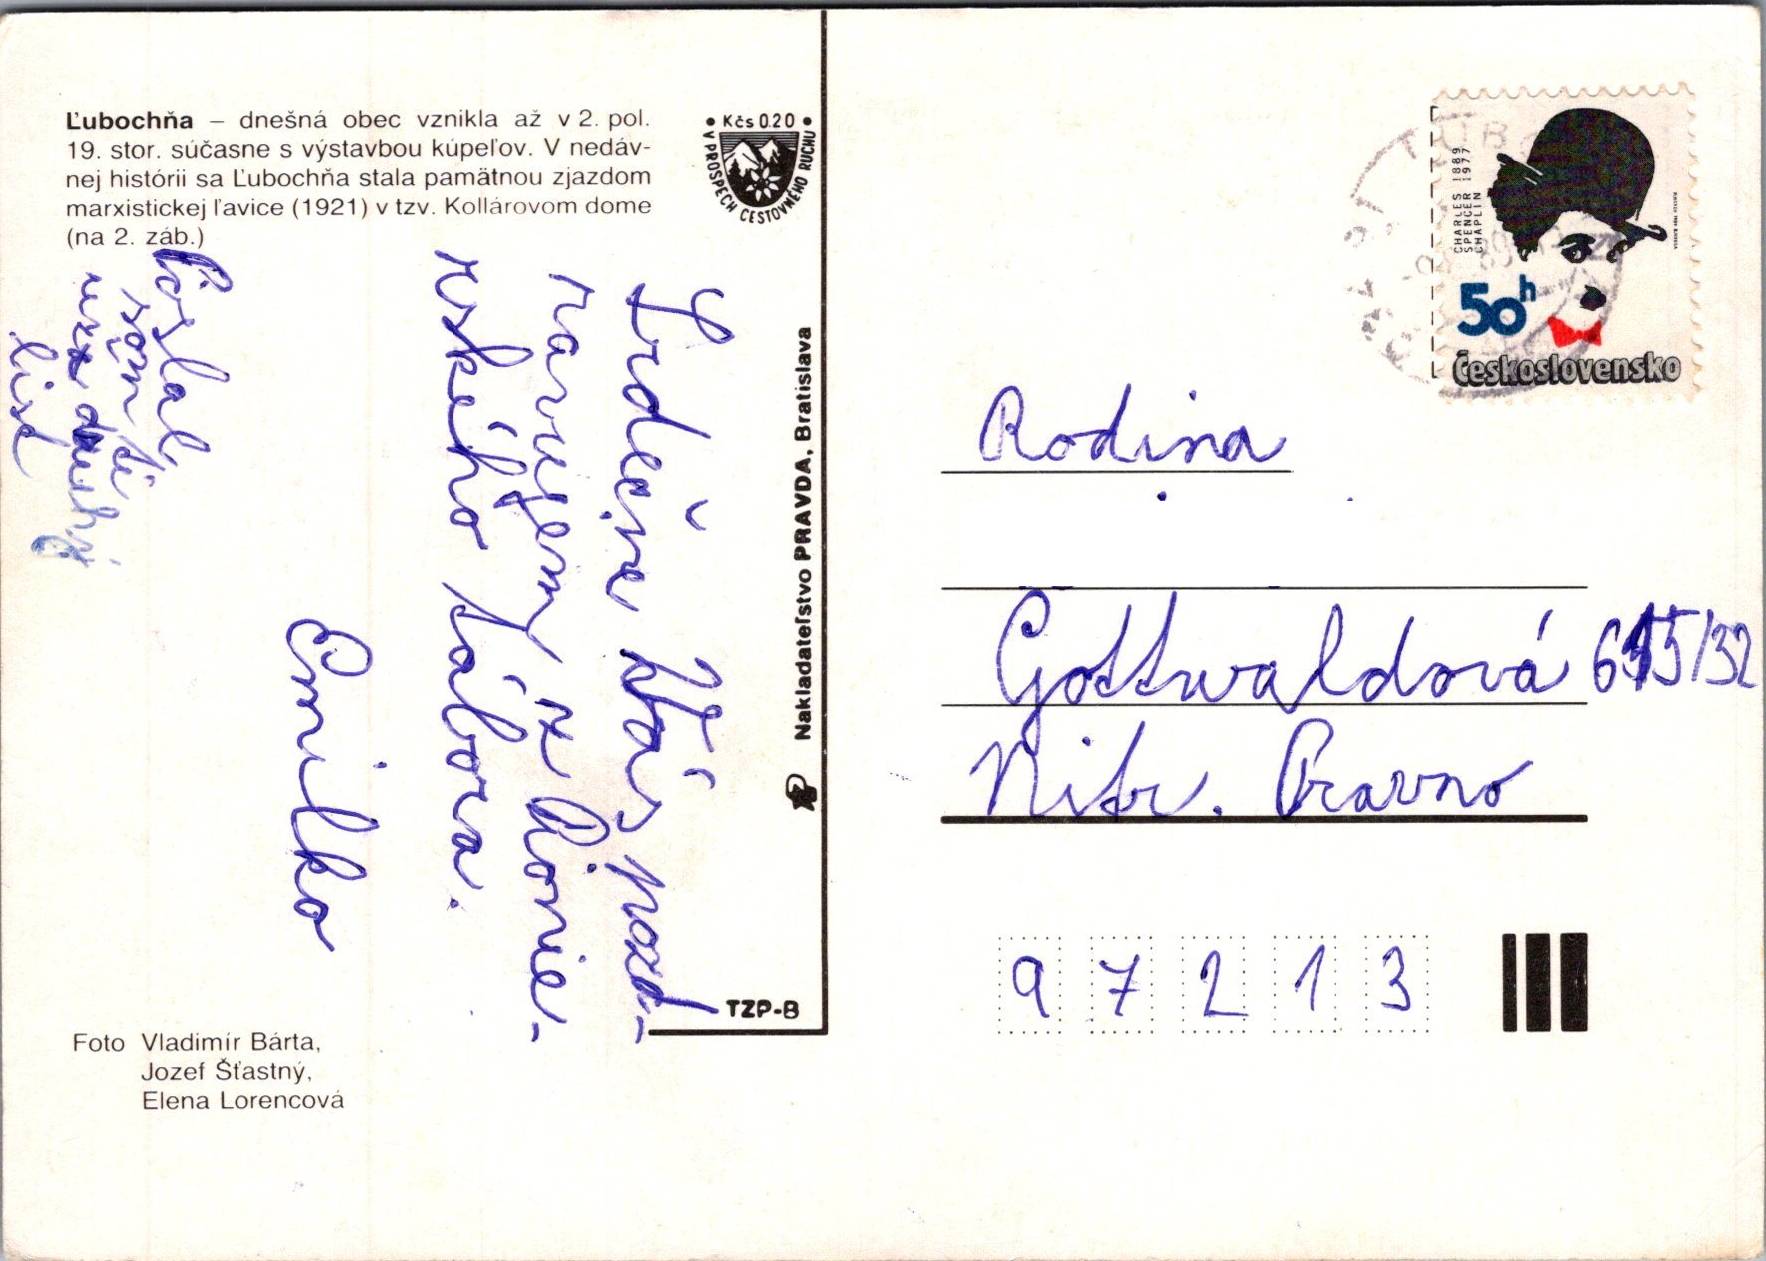 Ľubochňa – dnešná obec vznikla až v 2. pol.
19. stor. súčasne s výstavbou kúpeľov. V nedáv-
nej histórii sa Ľubochňa stala pamätnou zjazdom
marxistickej ľavice (1921) v tzv. Kollárovom dome
(na 2. záb.)
• Kčs 0.20 •
V PROSPECH CESTOVNÉHO RUCHU
Srdečne Vás pozd-
ravujem z Pionie-
rského tábora.
Emilko
Poslal
som ti
už druhý
list
Nakladateľstvo PRAVDA, Bratislava
TZP-B
Foto Vladimír Bárta,
Jozef Šťastný,
Elena Lorencová
CHARLES 1889
SPENCER 1977
CHAPLIN
50h
Československo
Rodina
Gottwaldová 615/32
Nitr. Pravno
97213